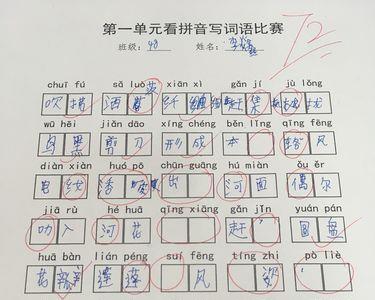 第一单元看拼音写词语比赛 72
班级: 48 姓名: 李
chuī fú sǎ luò xiān xì gǎn jí jù lǒng
吹拂 洒落 纤细 赶集 拢
wū hēi jiǎn dāo xíng chéng běn lǐng qīng fēng
乌黑 剪刀 形成 本 轻风
diàn xiàn huó pō chūn guāng hú miàn ǒu ěr
电线 活 河面 偶尔
jiā rù hé huā qīng xiāng gǎn jǐn yuán pán
叻入 河花 赶 圆盘
huā bàn lián péng suí fēng tíng zhǐ pò liè
花瓣 莲莲 风 姿